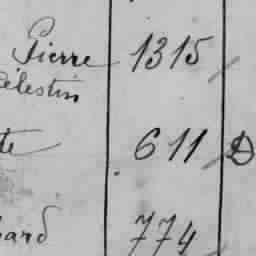 Pierre 1315
Célestin
te 611 D
ard 774